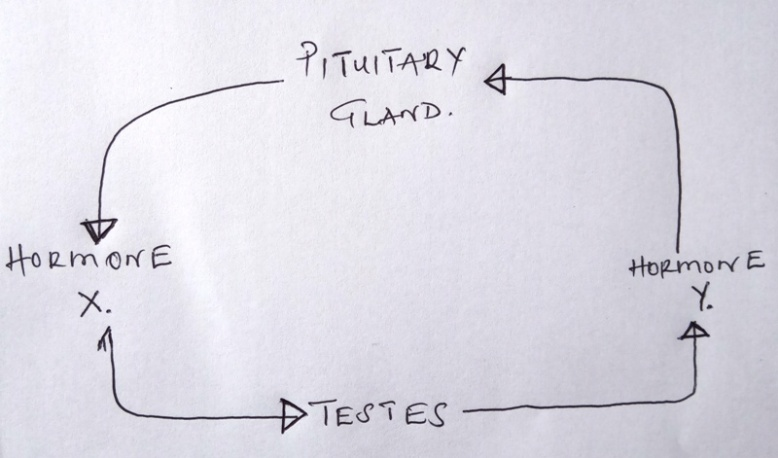 PITUITARY
GLAND.
HORMONE
X.
HORMONE
Y.
TESTES